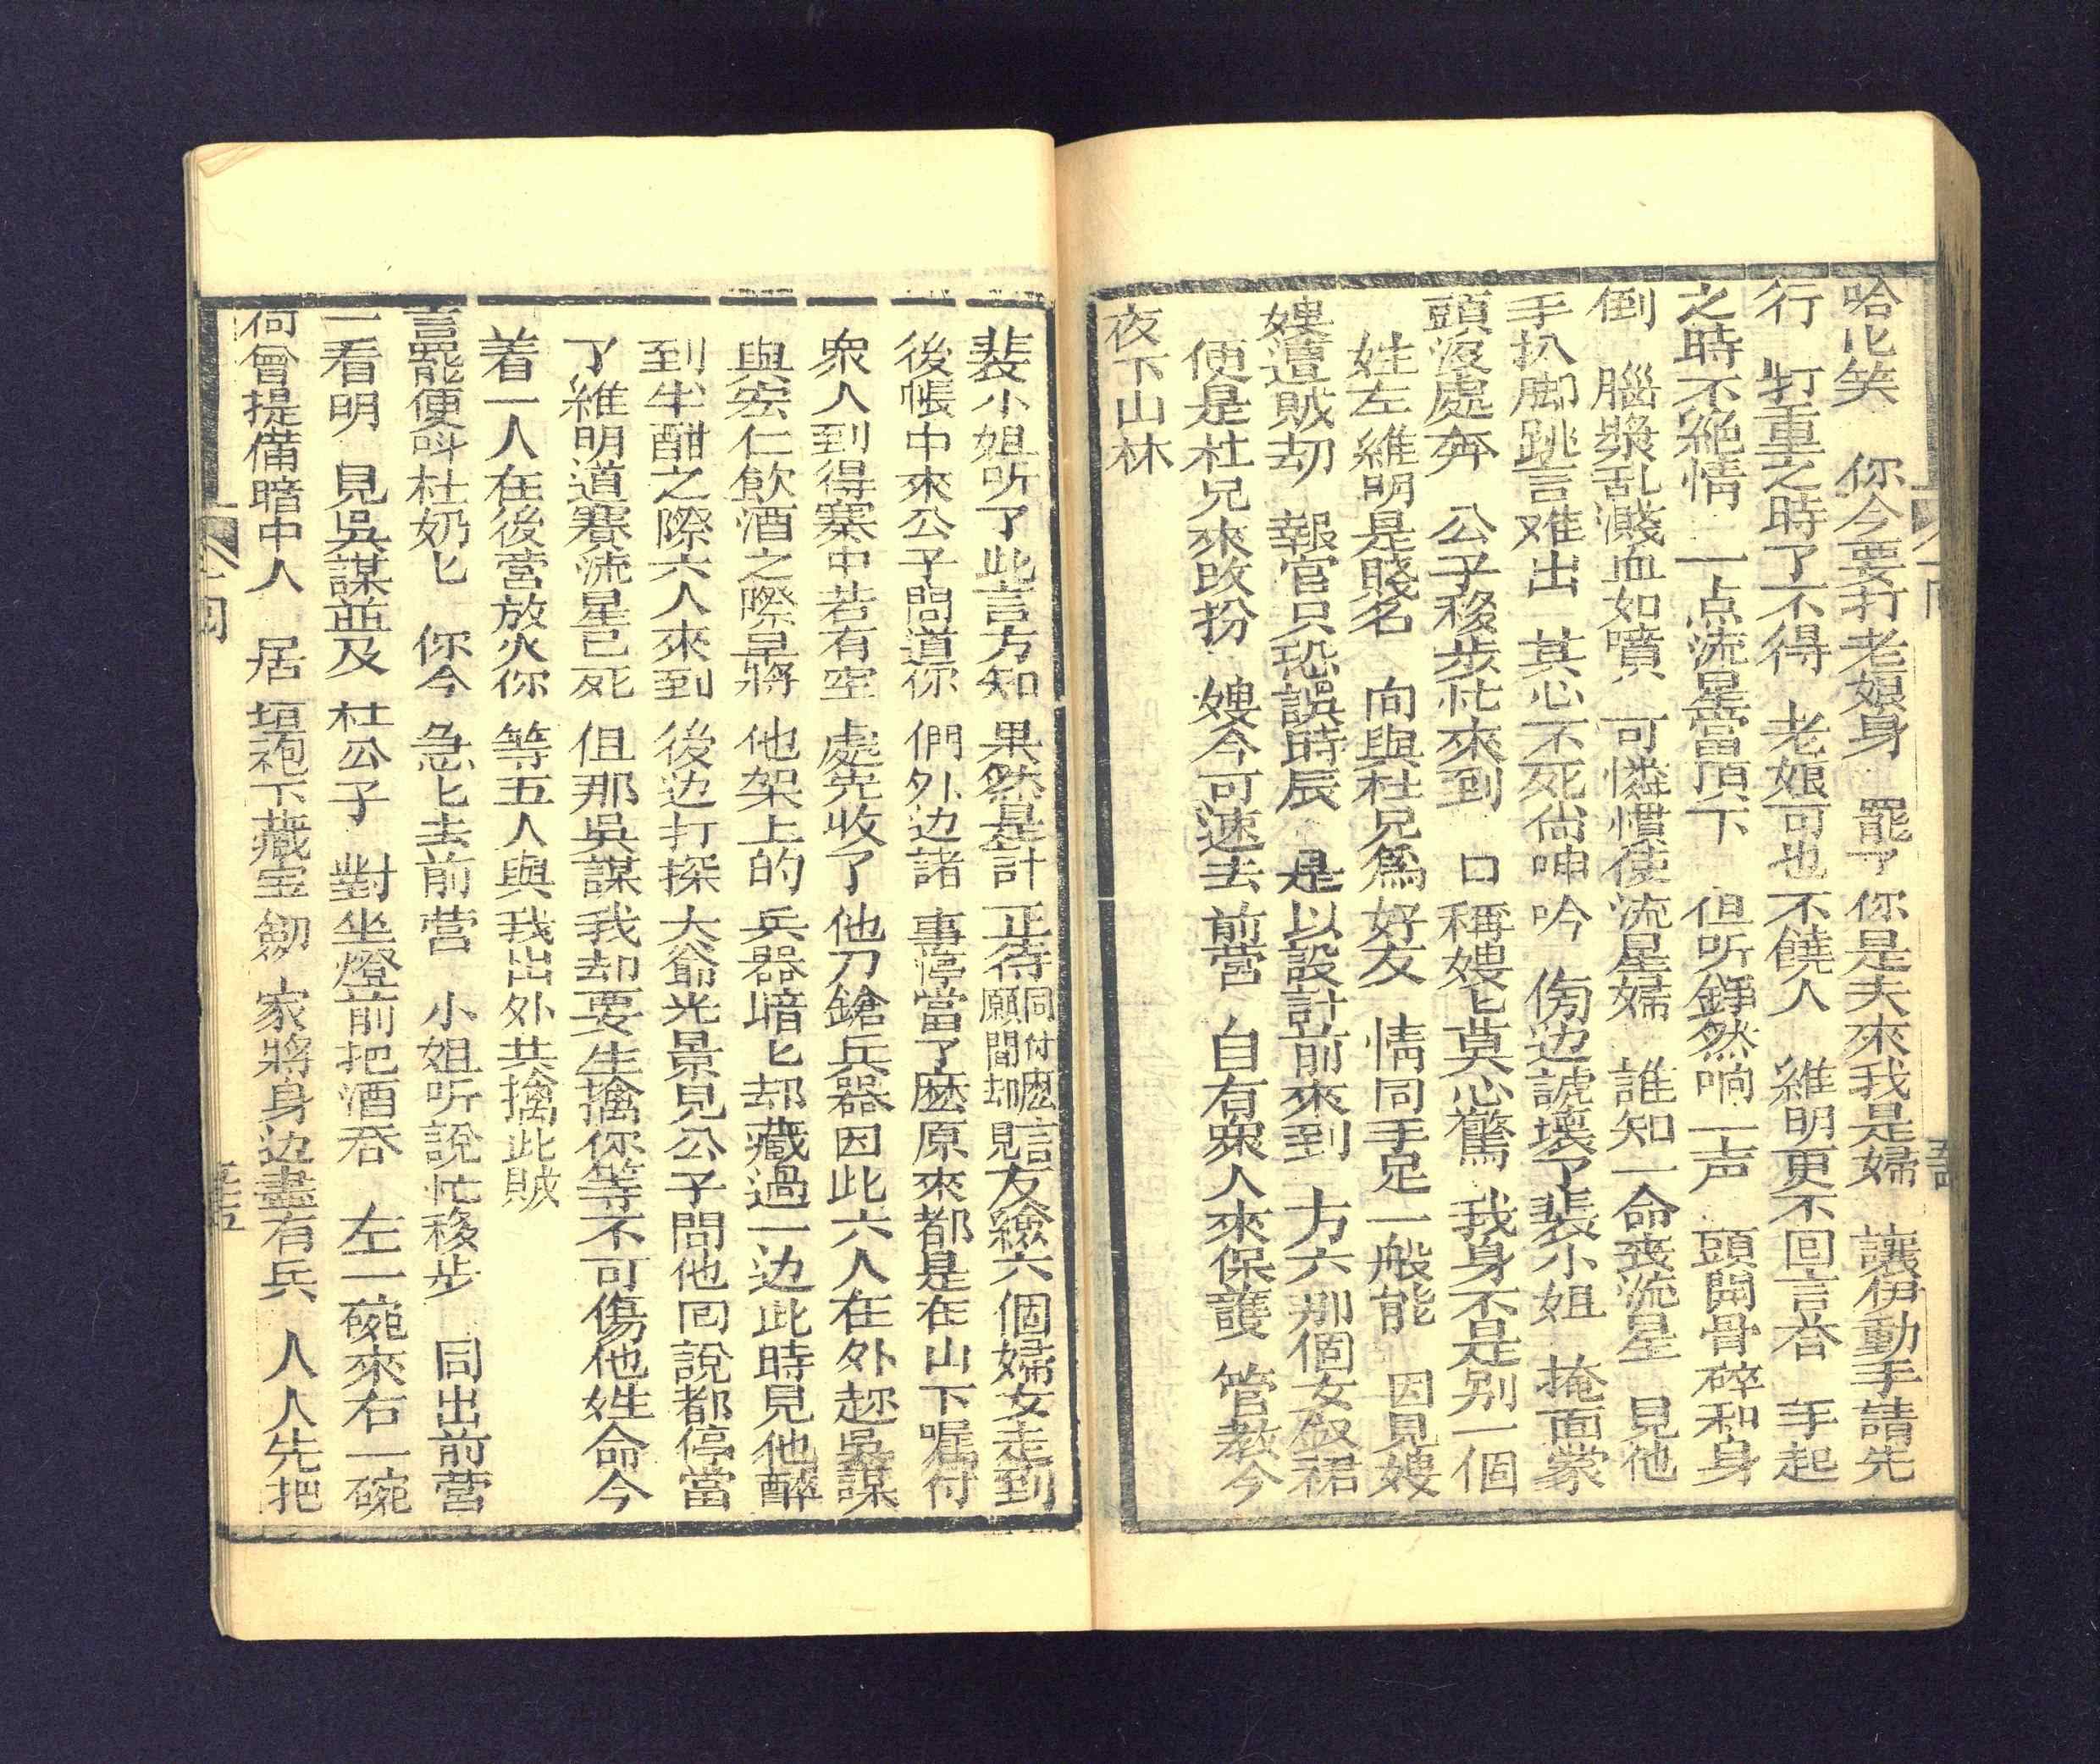 哈匕笑　你今要打老娘身　罷了你是夫來我是婦　讓伊動手請先
行　打重之時了不得　老娘可也不饒人　維明更不回言答　手起
之時不絕情　一点流星當頂下　但听錚然响一声　頭開骨碎和身
倒　腦漿乱濺血如噴　可憐慣使流星婦　誰知一命喪流星　見他
手扒脚跳言难出　其心不死尙呻吟　傍边諕壞了裴小姐　掩面蒙
頭沒處奔　公子移步忙來到　口稱嫂匕莫心驚　我身不是别一個
姓左維明是賤名　向與杜兄爲好友　情同手足一般能　因見嫂
嫂遭賊刼　報官只恐誤時辰　是以設計前來到　方六那個女釵裙
便是杜兄來改扮　嫂今可速去前營　自有衆人來保護　管教今
夜下山林
裴小姐听了此言方知果然是計正待同付麽言願間却見友纔六個婦女走到
後帳中來公子問道你們外边諸事停當了麽原來都是在山下囑付
衆人到得寨中若有空處先收了他刀鎗兵器因此六人在外趂吳謀
與宏仁飲酒之際早將他架上的兵器暗匕却藏過一边此時見他醉
到半酣之際六人來到後边打探大爺光景見公子問他回說都停當
了維明道賽流星已死但那吳謀我却要生擒你等不可傷他姓命今
着一人在後營放火你等五人與我出外共擒此賊
言罷便呌杜奶匕　你今急匕去前营　小姐听說忙移步　同出前营
一看明　見吳謀並及杜公子　對坐燈前把酒吞　左一碗來右一碗
何曾提備暗中人　居垣袍下藏宝劒　家將身边盡有兵　人人先把